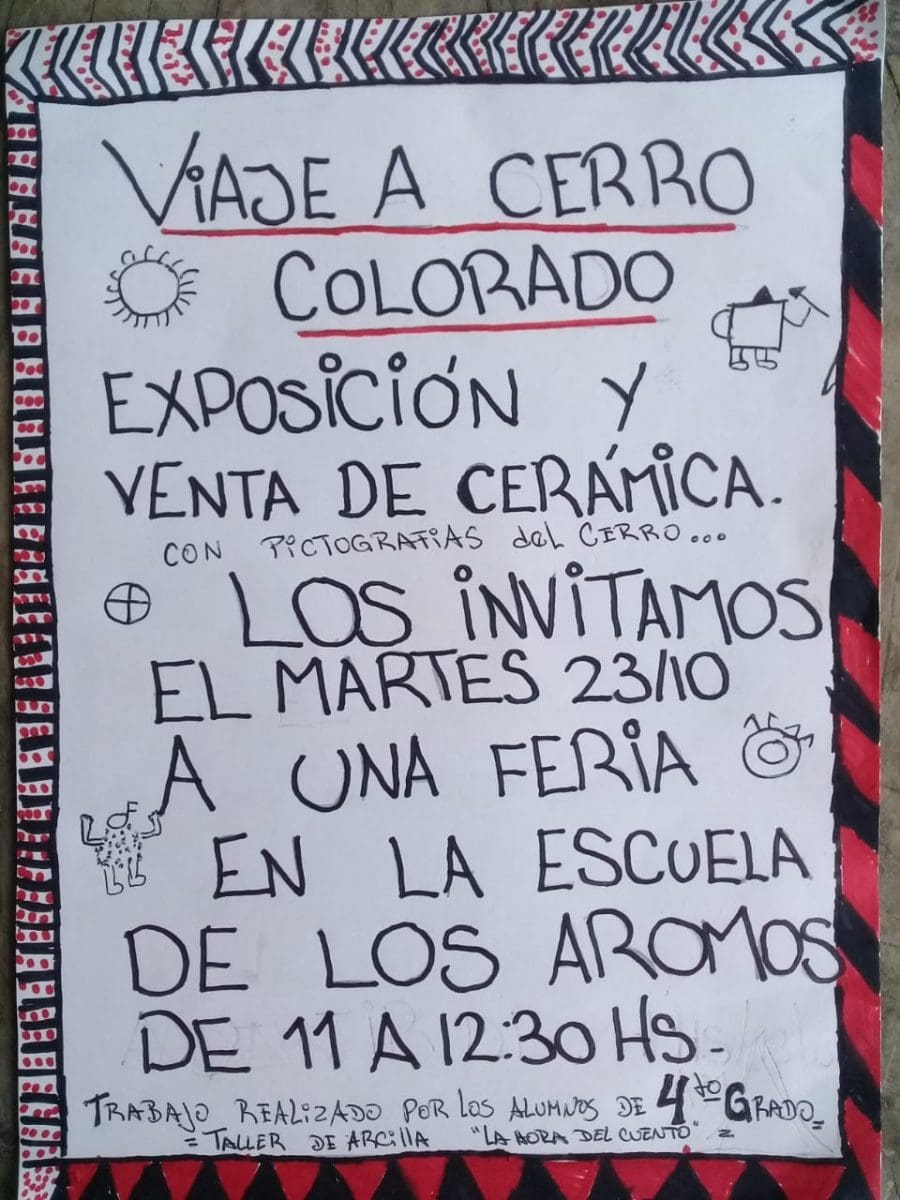 VIAJE A CERRO
COLORADO
EXPOSICIÓN Y
VENTA DE CERÁMICA.
CON PICTOGRAFIAS del CERRO...
LOS INVITAMOS
EL MARTES 23/10
A UNA FERIA
EN LA ESCUELA
DE LOS AROMOS
DE 11 A 12:30 HS.
TRABAJO REALIZADO POR LOS ALUMNOS DE 4to GRADO=
= TALLER DE ARCILLA "LA HORA DEL CUENTO" =